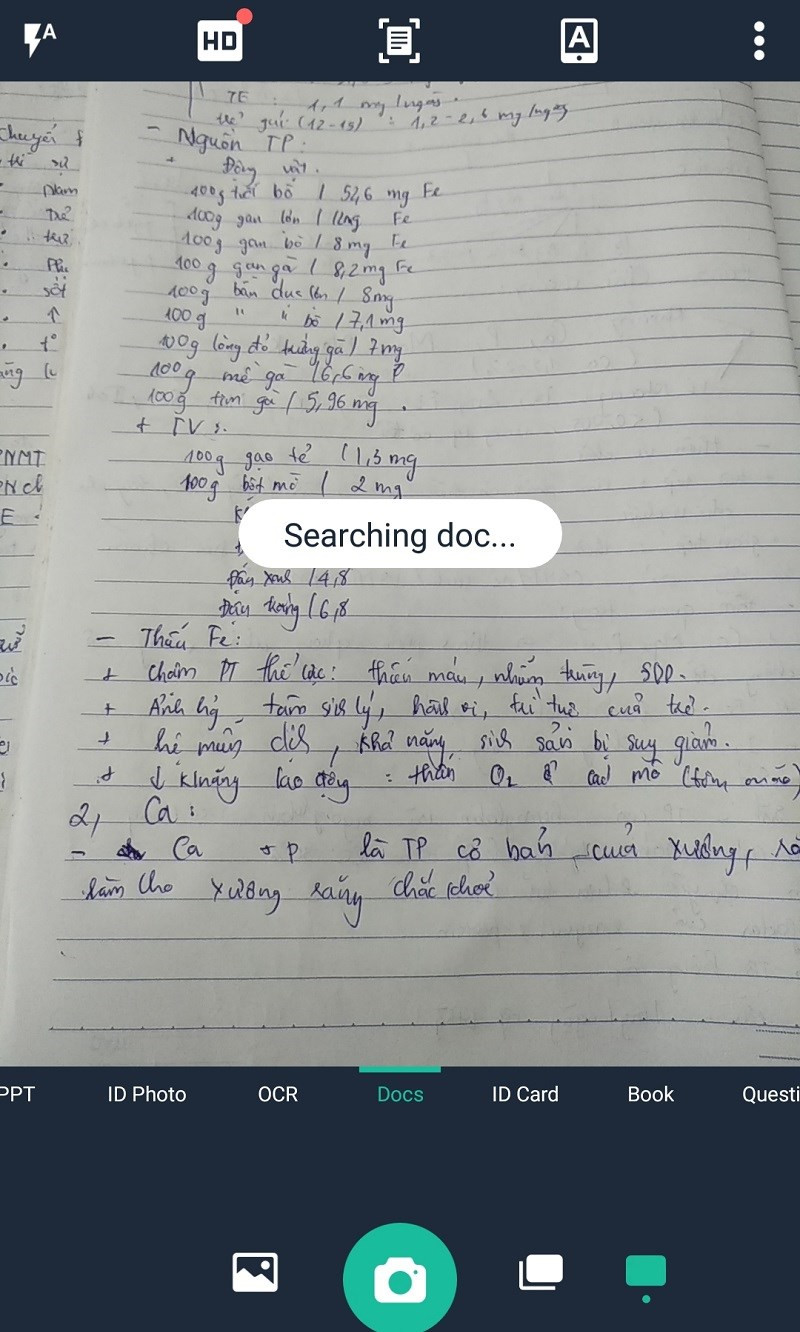 A
HD
A
TE : 1,1 mg/ngày.
gái (12-15) : 1,2-2,6 mg/ngày
- Nguồn TP:
+ Động vật.
100g tiết bò / 52,6 mg Fe
100g gan lợn / 12mg Fe
100g gan bò / 8mg Fe
100g gan gà / 8,2mg Fe
100g bầu dục lợn / 8mg
100g " " bò / 7,1mg
100g lòng đỏ trứng gà / 7mg
100g mề gà / 6,6mg
100g tim gà / 5,96mg.
+ TV:
100g gạo tẻ / 1,3mg
100g bột mỳ / 2mg
Searching doc...
Đậu xanh / 4,8
Đậu / 6,8
- Thiếu Fe:
+ Chậm PT thể lực: thiếu máu, nhiễm trùng, SDD.
+ Ảnh hg tâm sinh lý, hành vi, trí tuệ của trẻ.
+ hệ miễn dịch, khả năng sinh sản bị suy giảm.
+ ↓ năng lao động : thiếu O2 ở các mô
2, Ca:
- Ca + P là TP cơ bản của xương,
làm cho xương răng chắc khoẻ
Chuyển
Nam
Trẻ
Phụ
sốt
↑
t°
NMT
E
PPT
ID Photo
OCR
Docs
ID Card
Book
Questi